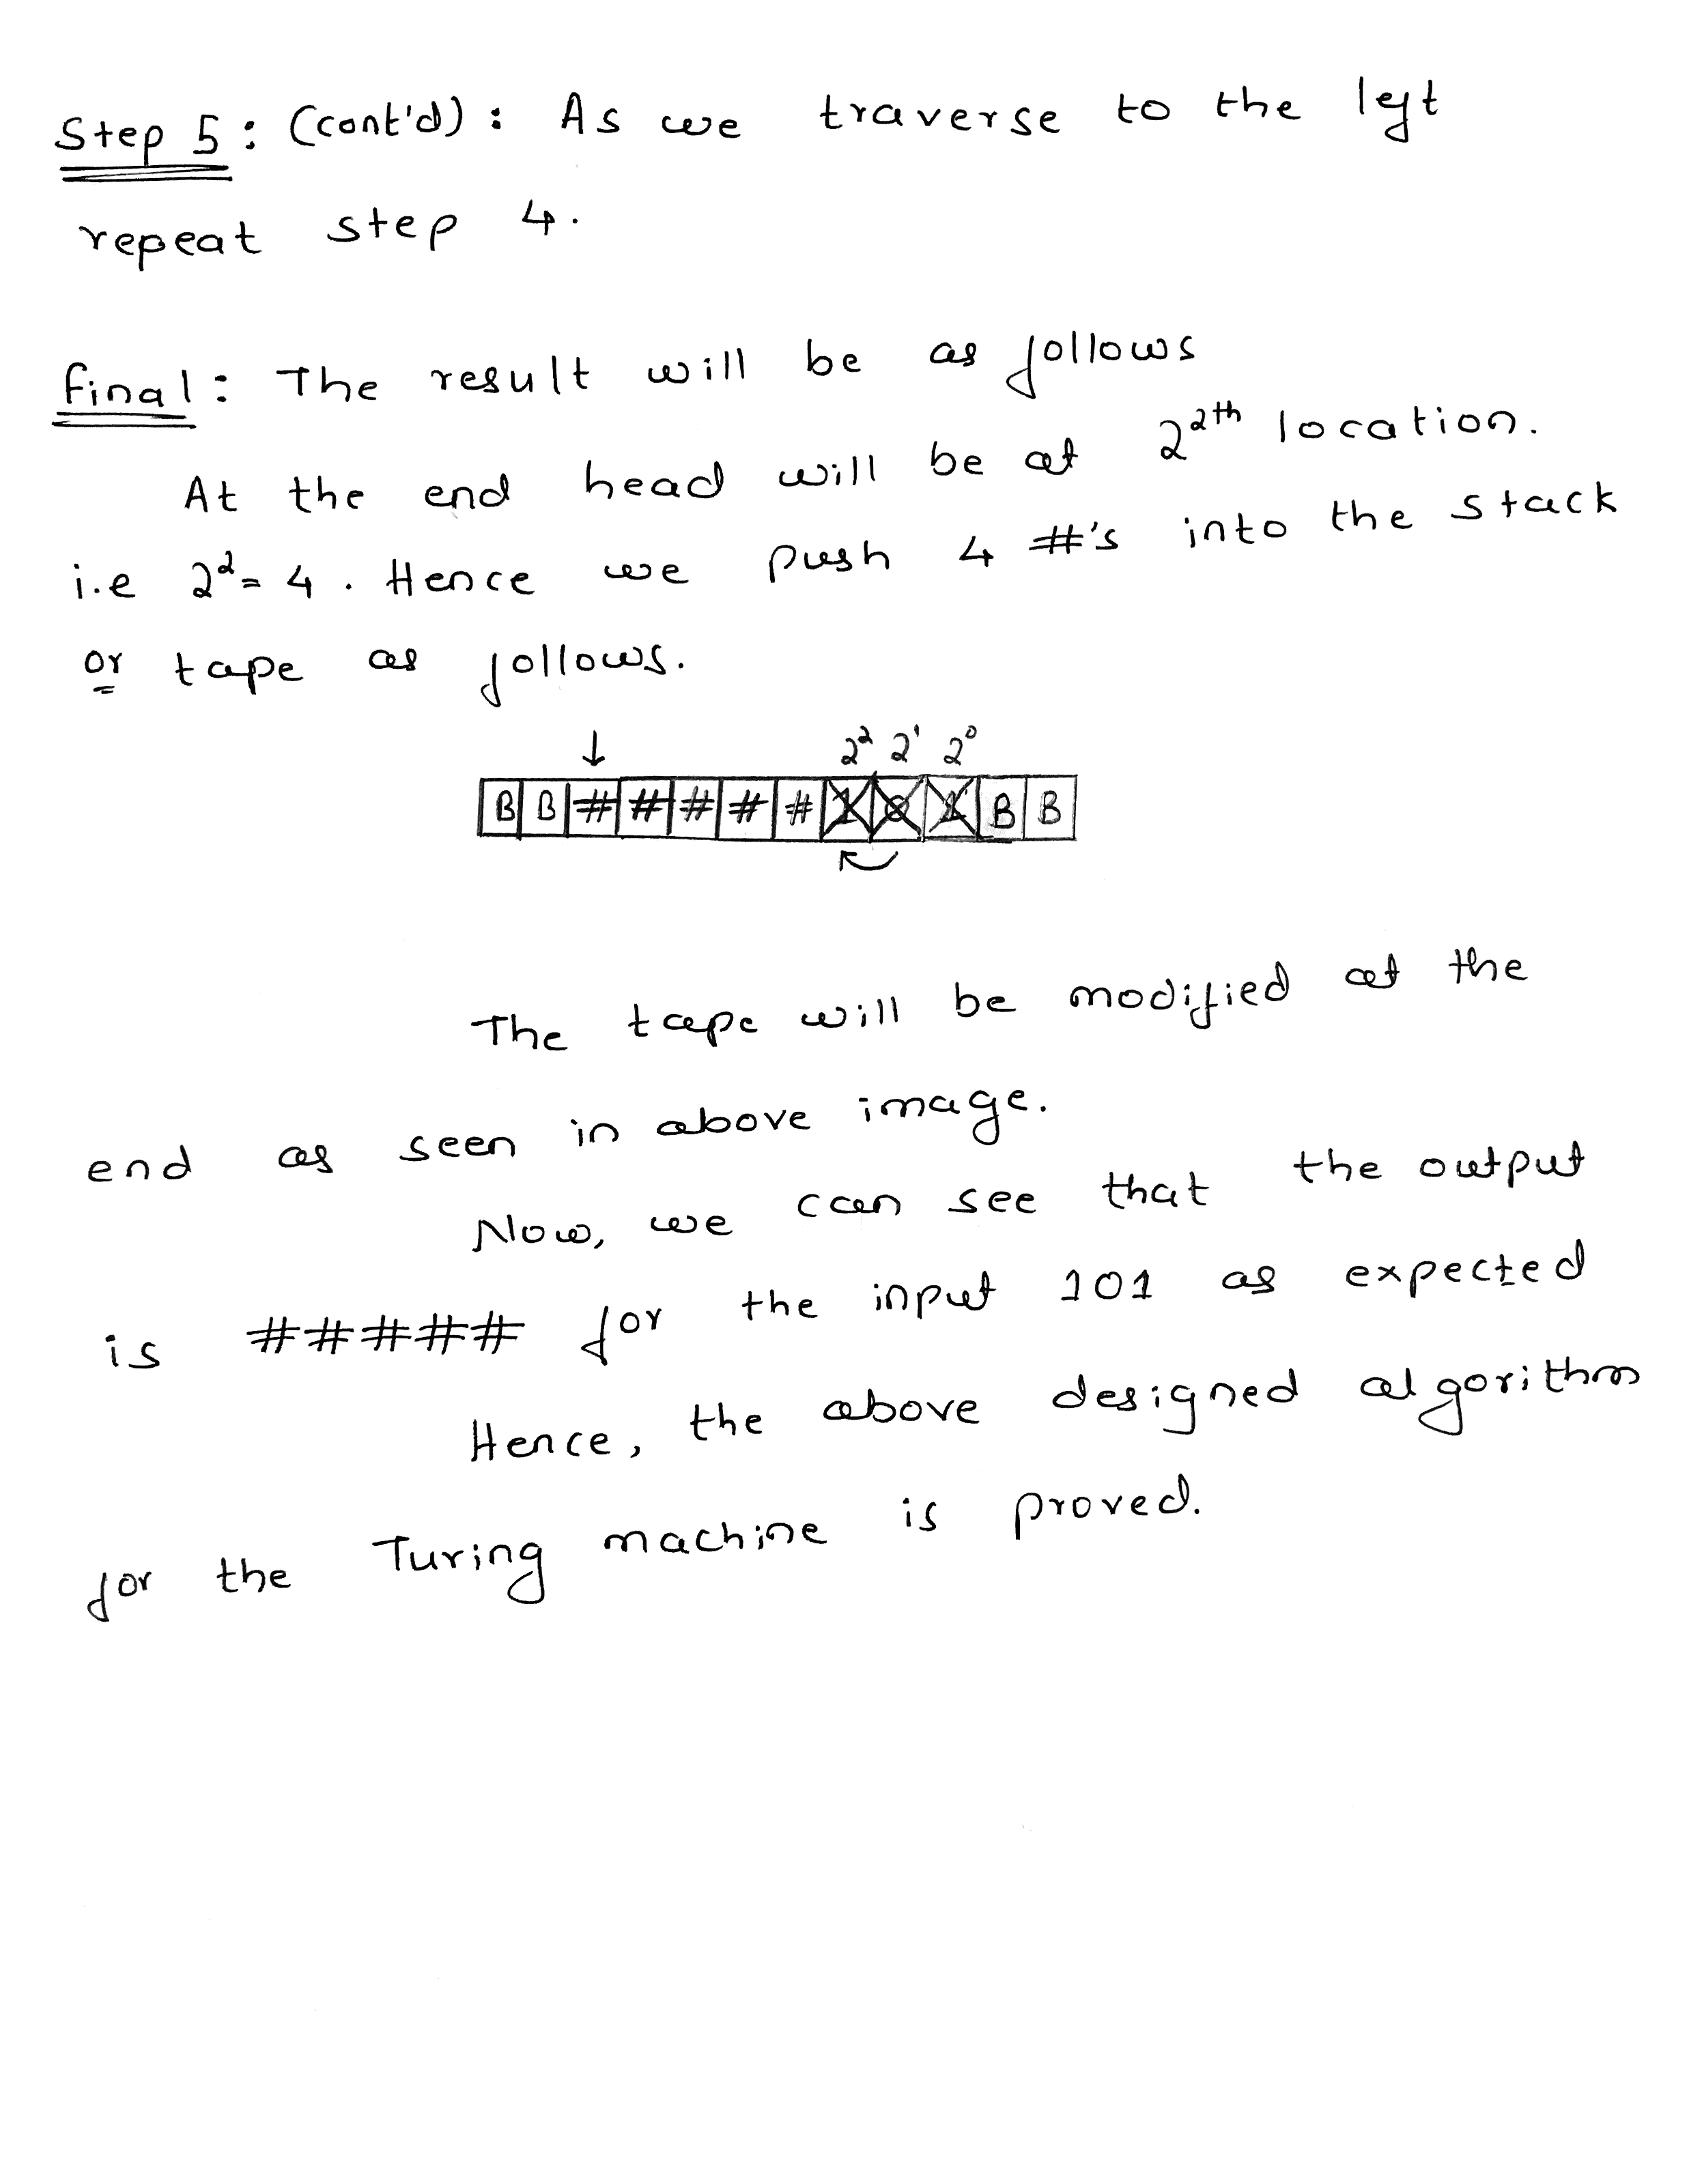 Step 5: (cont'd): As we traverse to the left
repeat step 4.
final: The result will be as follows
At the end head will be at 2^2th location.
i.e 2^2 = 4. Hence we push 4 #'s into the stack
or tape as follows.
↓ 2^2 2^1 2^0
B B # # # # # 1 0 1 B B
The tape will be modified at the
end as seen in above image.
Now, we can see that the output
is ##### for the input 101 as expected
Hence, the above designed algorithm
for the Turing machine is proved.